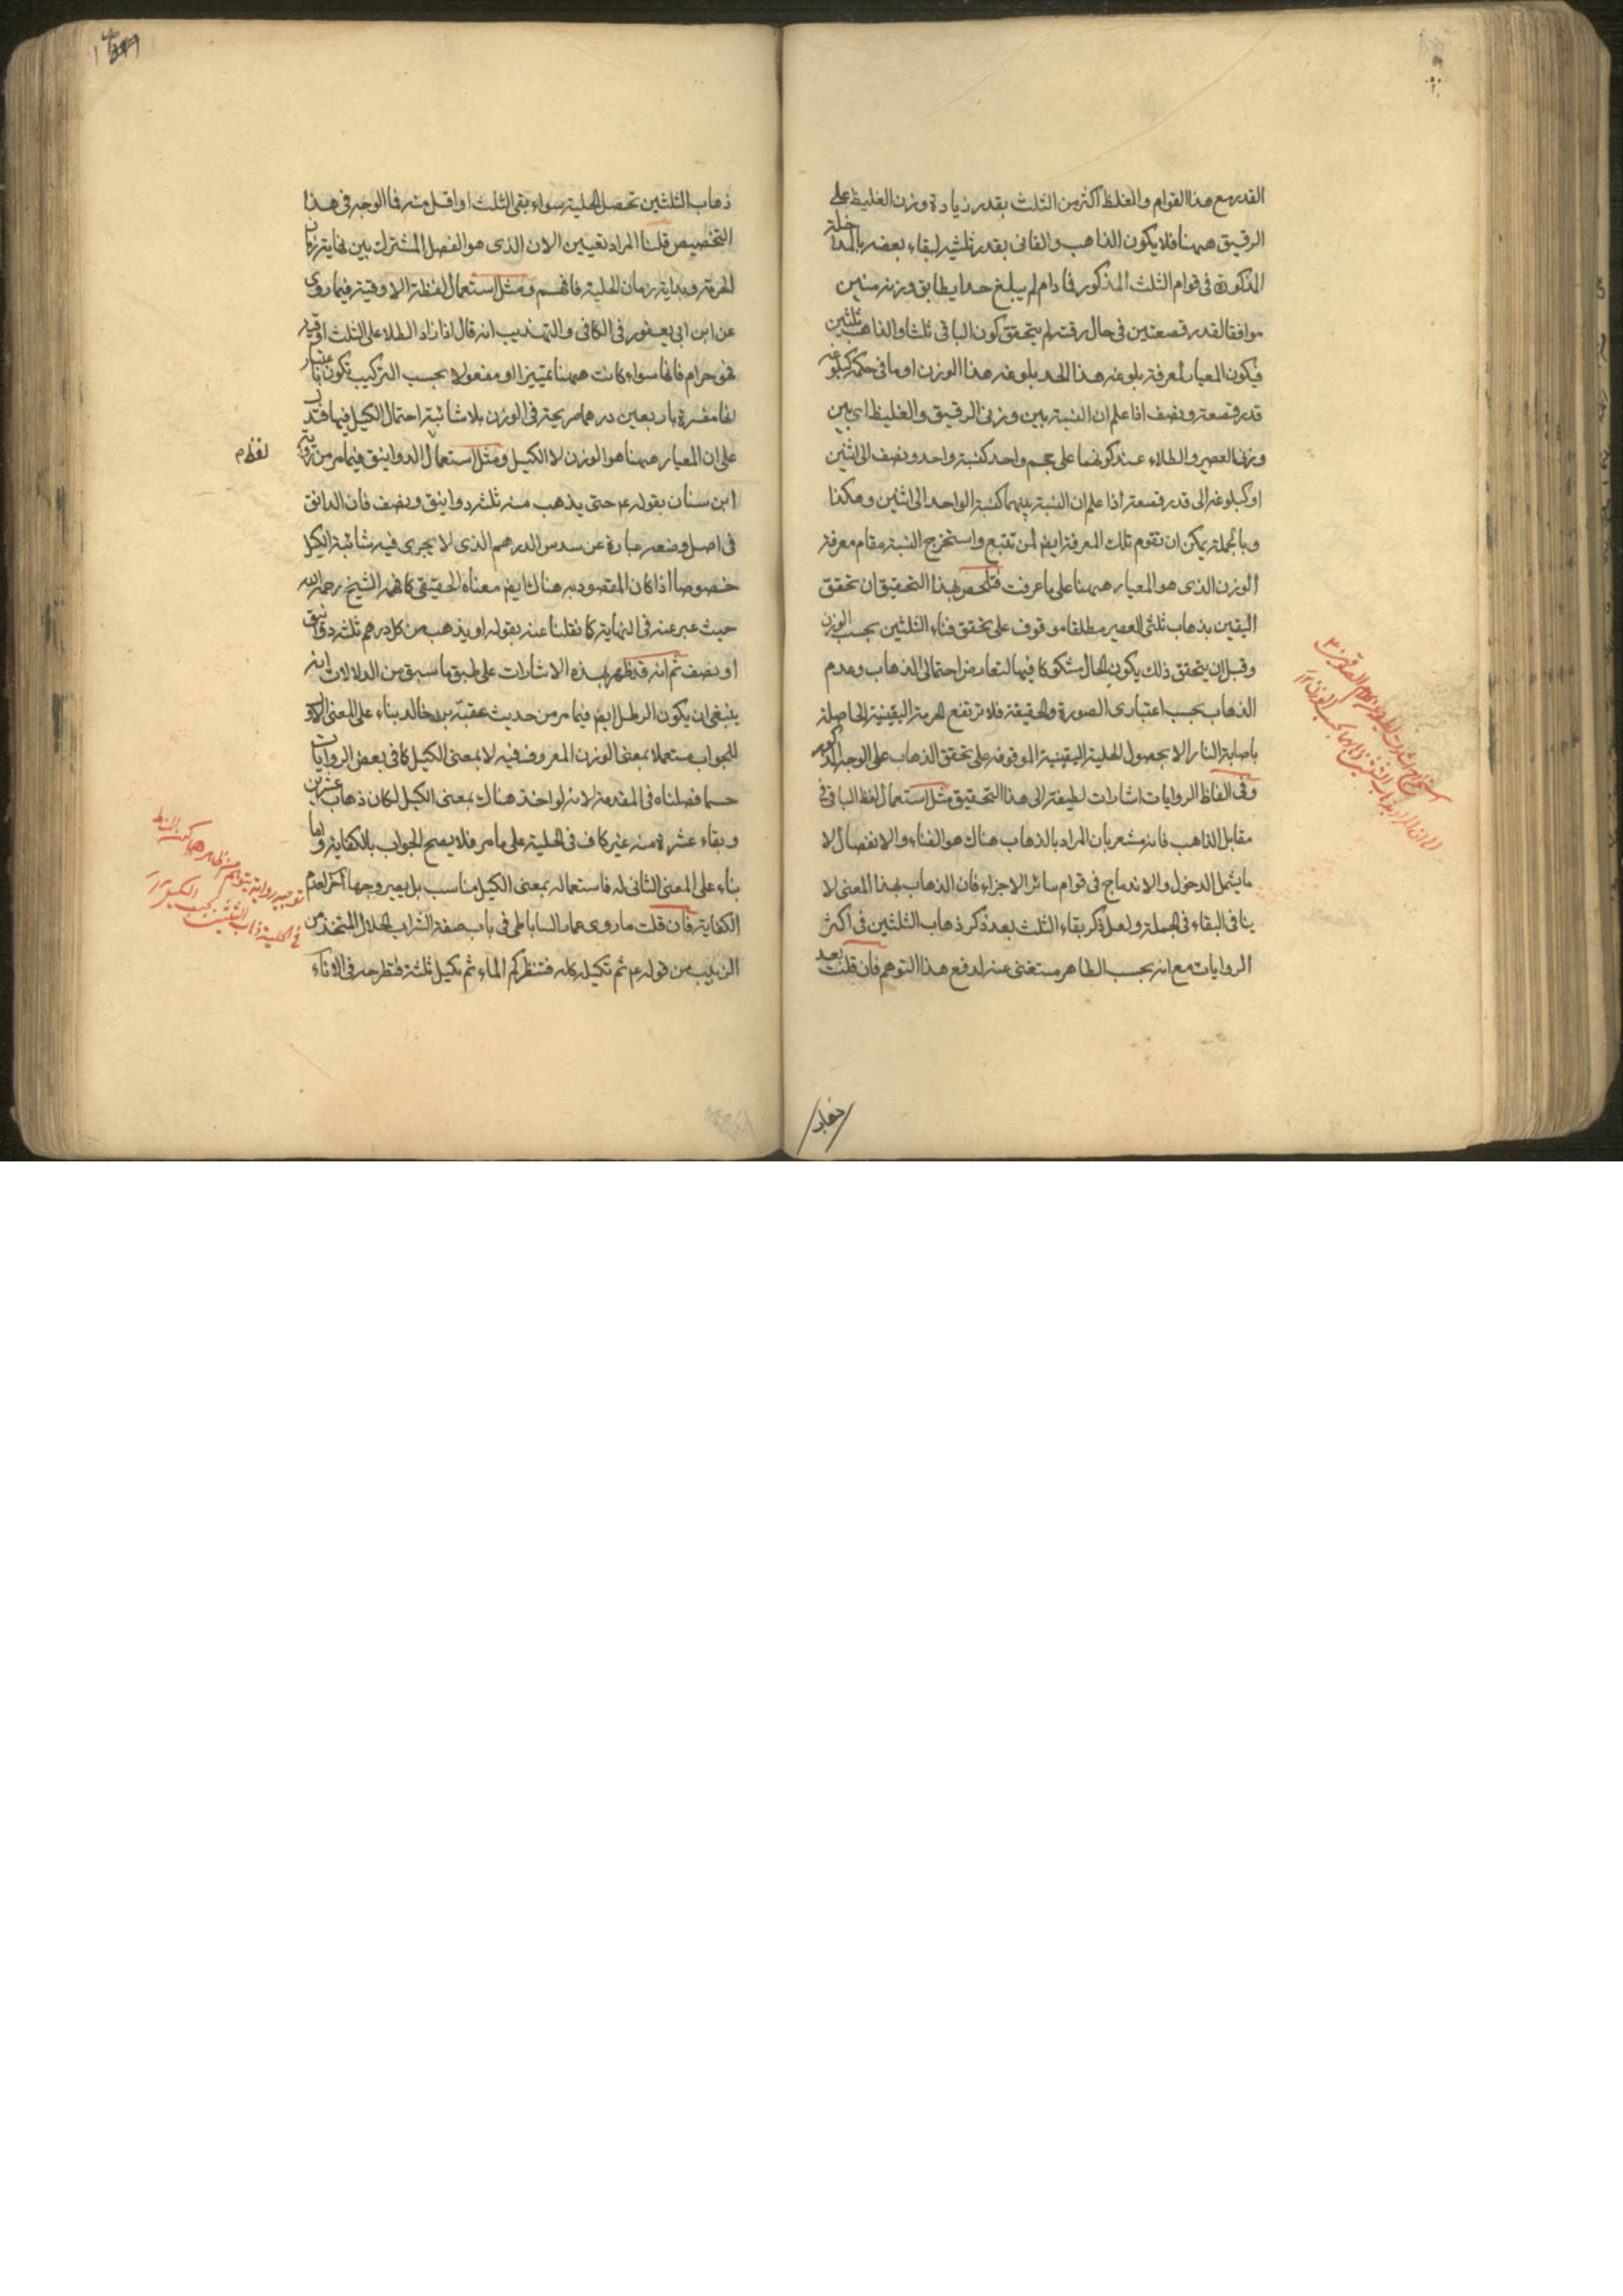 القدر مع هذا القوام والغلظ اكثر من الثلث بقدر زيادة وزن الغليظ على
الرقيق ههنا فلا يكون الذاهب والفانى بقدر ثلثيه لبقاء بعضه بالمداخلة
المذكورة فى قوام الثلث المذكور فما دام لم يبلغ حدا يطابق وزنه منين
موافقا لقدر قصعتين فى حال رقته لم يتحقق كون الباقى ثلثا والذاهب ثلثين
فيكون المعيار لمعرفة بلوغه هذا الحد بلوغه هذا الوزن او ما فى حكمه كبلوغه
قدر قصعة ونصف اذا علم ان النسبة بين وزنى الرقيق والغليظ اى بين
وزنى العصير والطلاء عند كونهما على حجم واحد كنسبة واحد ونصف الى اثنين
او كبلوغه الى قدر قصعة اذا علم ان النسبة بينهما كنسبة الواحد الى اثنين وهكذا
وبالجملة يمكن ان تقوم تلك المعرفة ايضا لمن تتبع واستخرج النسبة مقام معرفة
الوزن الذى هو المعيار ههنا على ما عرفت فتلخص بهذا التحقيق ان تحقق
اليقين بذهاب ثلثى العصير مطلقا موقوف على تحقق فناء الثلثين بحسب الوزن
وقبل ان يتحقق ذلك يكون الحال مشكوكا فيها لتعارض احتمالى الذهاب وعدم
الذهاب بحسب اعتبارى الصورة والحقيقة فلا ترتفع الحرمة اليقينية الحاصلة
باصابة النار الا بحصول الحلية اليقينية الموقوفة على تحقق الذهاب على الوجه المذكور
وفى الفاظ الروايات اشارات لطيفة الى هذا التحقيق مثل استعمال لفظ الباقى فى
مقابل الذاهب فانه مشعر بان المراد بالذهاب هناك هو الفناء والانفصال لا
ما يشمل الدخول والاندماج فى قوام سائر الاجزاء فان الذهاب بهذا المعنى لا
ينافى البقاء فى الجملة ولعل ذكر بقاء الثلث بعد ذكر ذهاب الثلثين فى اكثر
الروايات مع انه بحسب الظاهر مستغنى عنه لدفع هذا التوهم فان قلت بعد
ذهاب
ذهاب الثلثين تحصل الحلية سواء بقى الثلث او اقل منه فما الوجه فى هذا
التخصيص قلنا المراد تعيين الان الذى هو الفصل المشترك بين نهاية زمان
الحرمة وبداية زمان الحلية فافهم ومثل استعمال لفظة الاوقية فيما روى
عن ابن ابى يعفور فى الكافى والتهذيب انه قال اذا زاد الطلا على الثلث اوقية
فهو حرام فانها سواء كانت ههنا تمييزا او مفعولا بحسب التركيب تكون باعتبار
انها مفسرة باربعين درهما صريحة فى الوزن بلا شائبة احتمال الكيل فيها فتدل
على ان المعيار ههنا هو الوزن لا الكيل ومثل استعمال الدوانيق فيما مر من رواية
لفظ م
ابن سنان بقوله ع حتى يذهب منه ثلثة دوانيق ونصف فان الدانق
فى اصل وضعه عبارة عن سدس الدرهم الذى لا يجرى فيه شائبة الكيل
خصوصا اذا كان المقصود به هناك ايضا معناه الحقيقى كما فهمه الشيخ رحمه الله
حيث عبر عنه فى النهاية كما نقلنا عنه بقوله او يذهب من كل درهم ثلثة دوانيق
او نصف ثم انه قد ظهر بهذه الاشارات على طبق ما سبق من الدلالات انه
ينبغى ان يكون الرطل ايضا فيما مر من حديث عقبة بن خالد بناء على المعنى الاول
للجواب مستعملا بمعنى الوزن المعروف فيه لا بمعنى الكيل كما فى بعض الروايات
حسبما فصلناه فى المقدمة لانه لو اخذ هناك بمعنى الكيل لكان ذهاب عشرين
وبقاء عشرة منه غير كاف فى الحلية على ما مر فلا يصح الجواب بالكفاية واما
بناء على المعنى الثانى له فاستعماله بمعنى الكيل مناسب بل يصير وجها آخر لعدم
الكفاية فان قلت ما روى عمار الساباطى فى باب صفة الشراب الحلال المتخذ من
الزبيب من قوله ع ثم تكيله كله فتنظر كم الماء ثم تكيل ثلثه فتطرحه فى الاناء